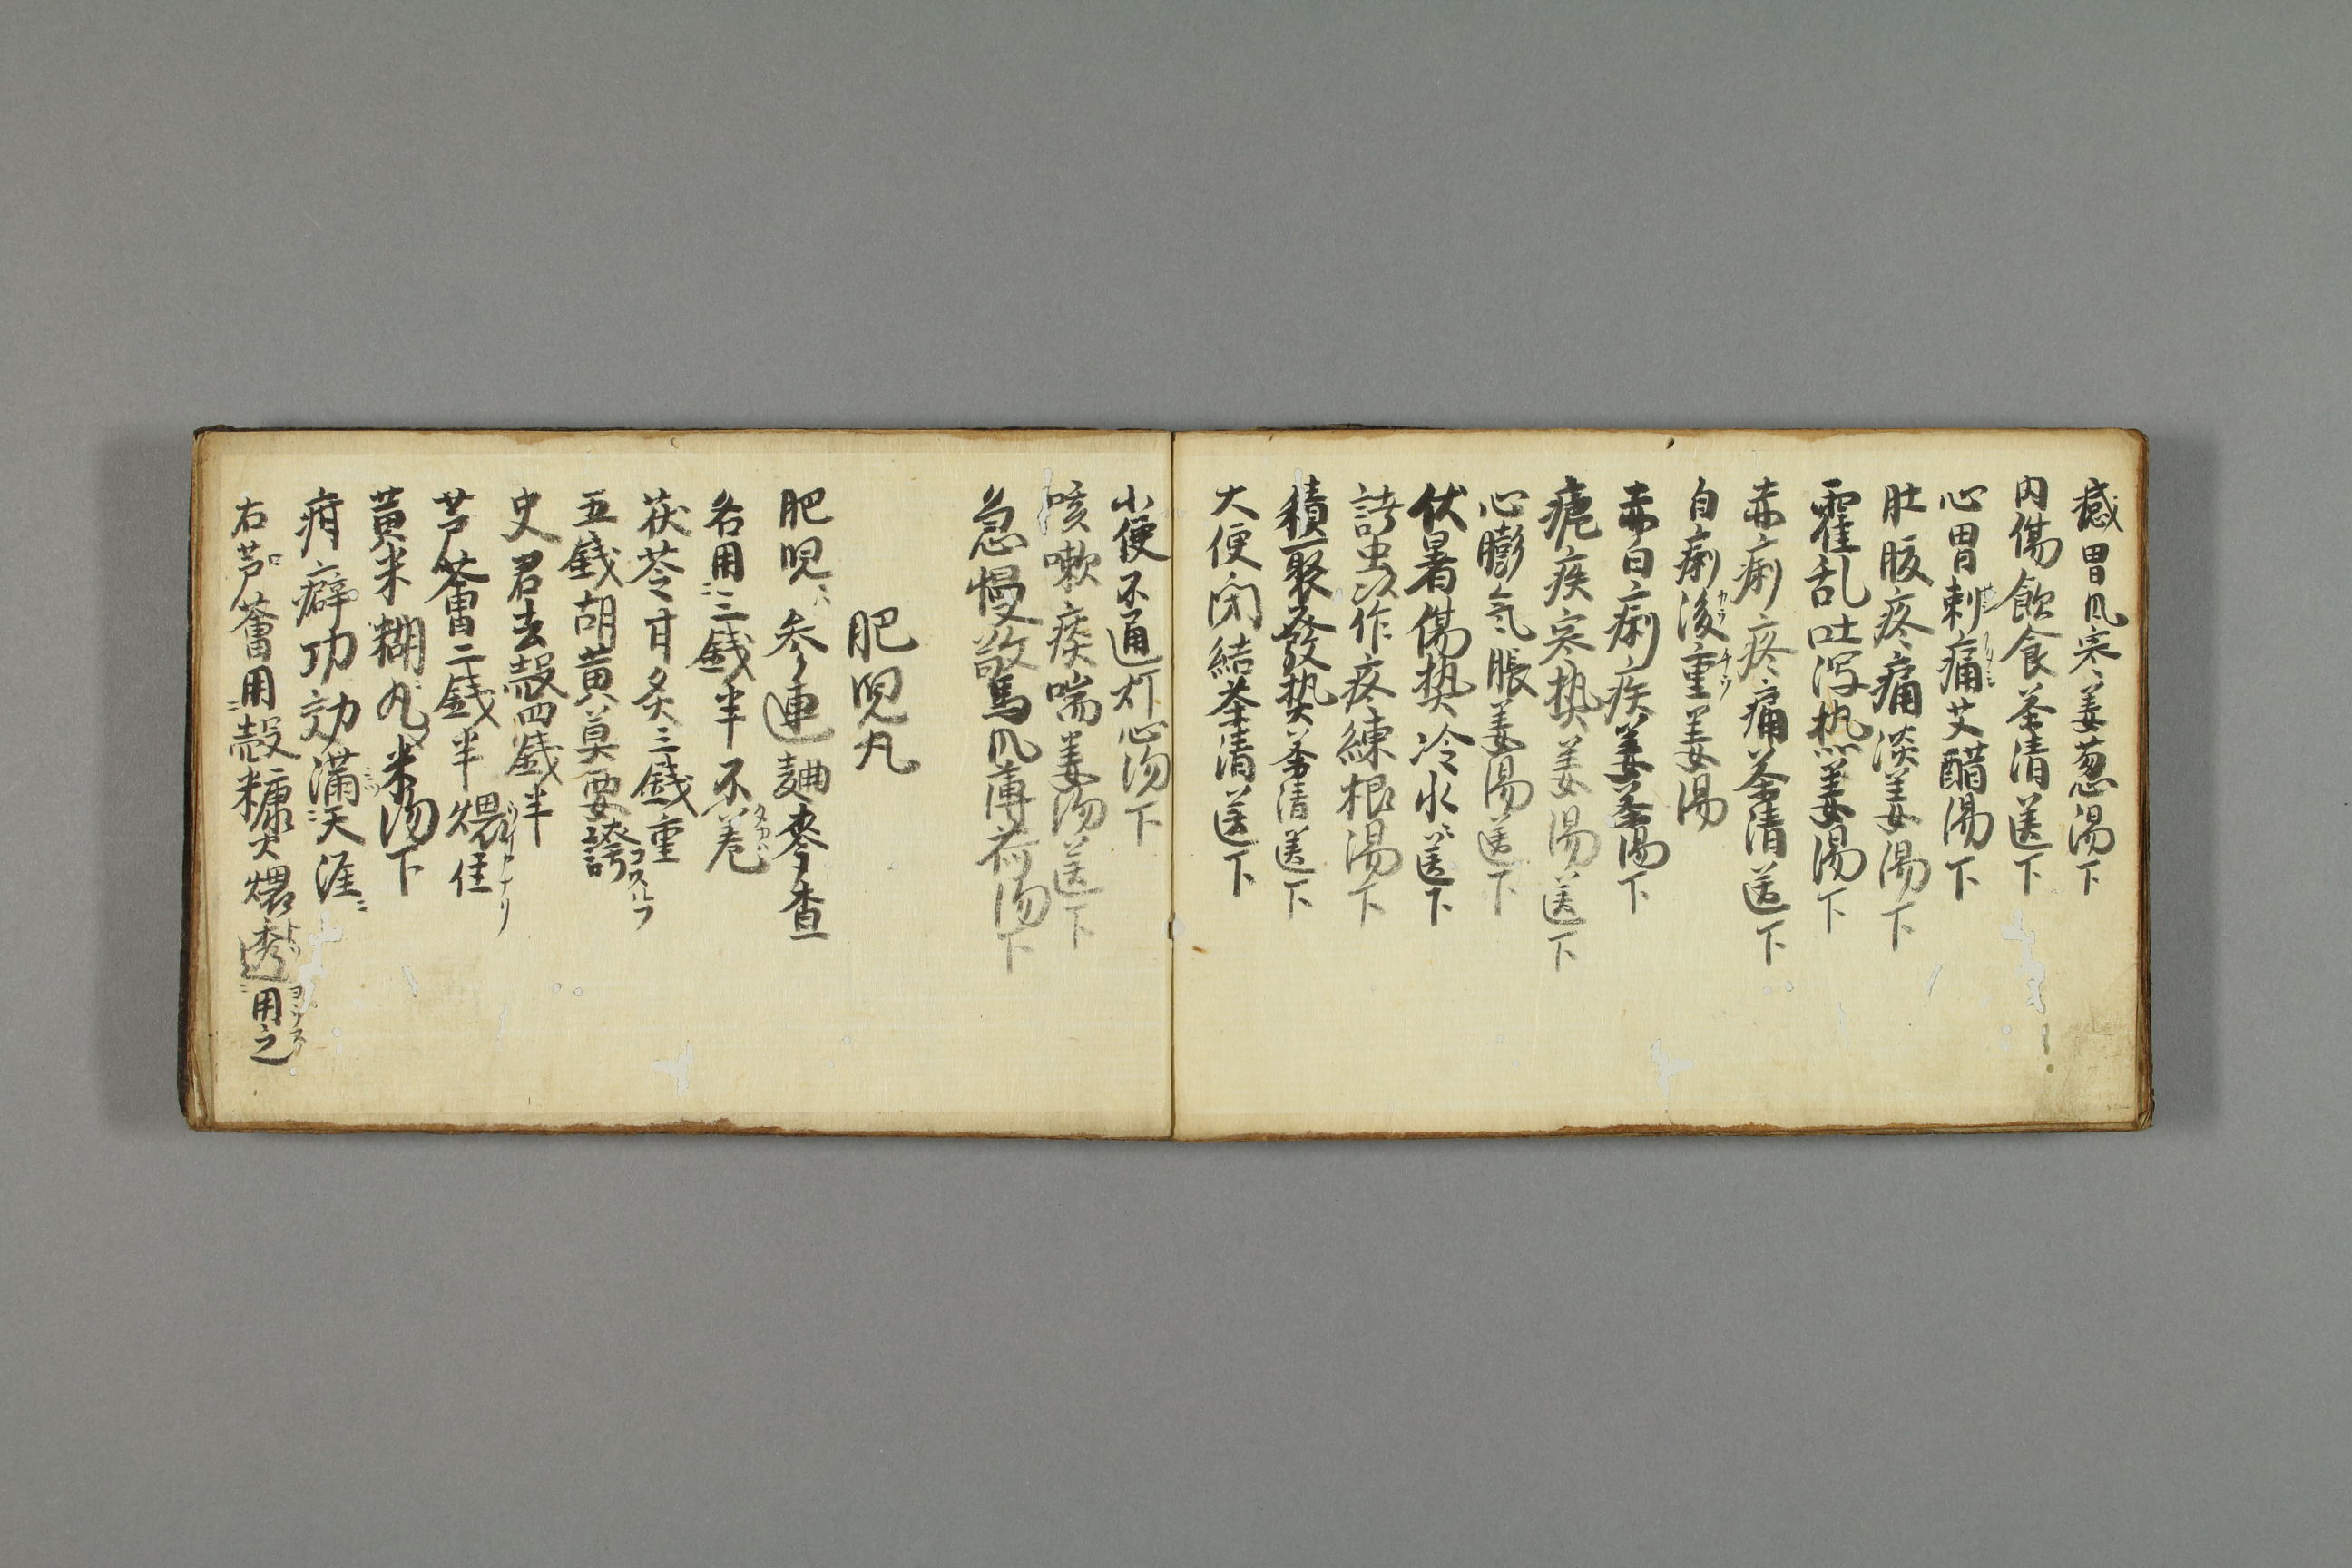 感胃凡寒姜葱湯下
内傷飲食茶清送下
心胃刺痛艾醋湯下
肚腹疼痛淡姜湯下
霍乱吐瀉热姜湯下
赤痢疼痛茶清送下
白痢後重姜湯
カラ チウ
赤白痢疾姜茶湯下
瘧疾寒热姜湯送下
心膨氣脹姜湯送下
伏暑傷热冷水送下
諸虫作疼練根湯下
積聚發热茶清送下
大便閉結茶清送下
小便不通灯心湯下
咳嗽痰喘姜湯送下
急慢驚凡薄荷湯下
肥児丸
肥児ハ参連麯麥査
各用ニ三錢半不差
茯苓甘炙三錢重
五錢胡黄莫要誇
コスルフ
史君去殻四錢半
芦薈二錢半煨佳
黄米糊丸米湯下
疳癖功効滿天涯ニ
右芦薈用ニ殻糠火煨透用之